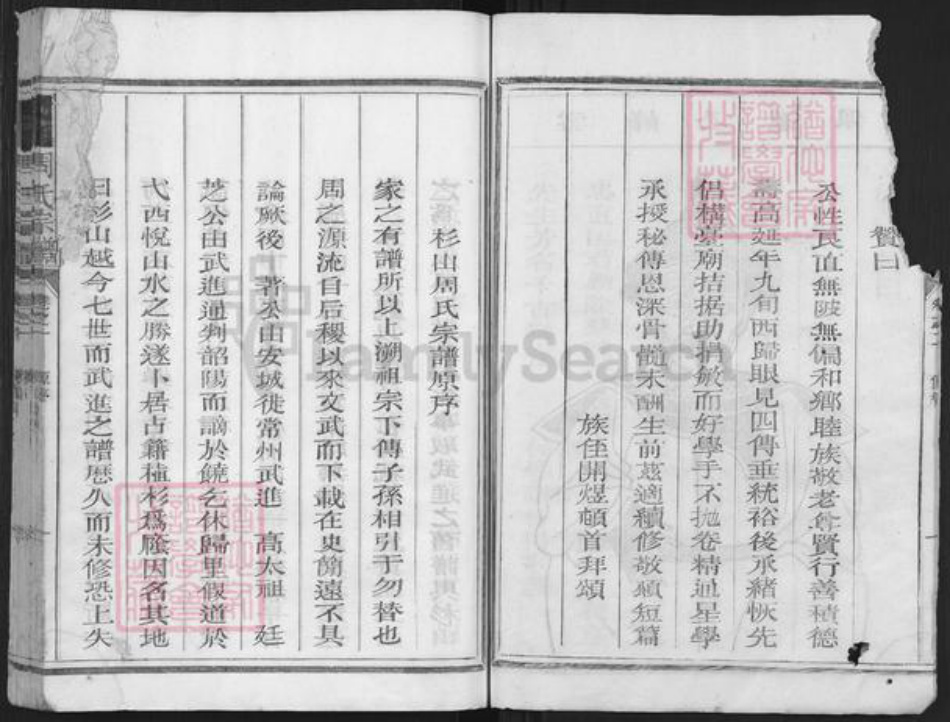 贊曰
公性良直無陂無偏和鄉睦族敬老尊賢行善積德
壽高延年九旬西歸眼見四傳垂統裕後承緒恢先
倡構臺廟拮据助捐敏而好學手不拋卷精通星學
承授秘傳恩深骨髓未酬生前茲適續修敬頌短篇
族侄開煜頓首拜頌
杉山周氏宗譜原序
家之有譜所以上溯祖宗下傳子孫相引于勿替也
周之源流自后稷以來文武而下載在史簡遠不具
論厥後 著公由安城徙常州武進 高太祖 廷
芝公由武進通判韶陽而謫於饒乞休歸里假道於
弋西悅山水之勝遂卜居占籍植杉為廕因名其地
曰杉山越今七世而武進之譜歷久而未修恐上失
周氏宗譜
FamilySearch